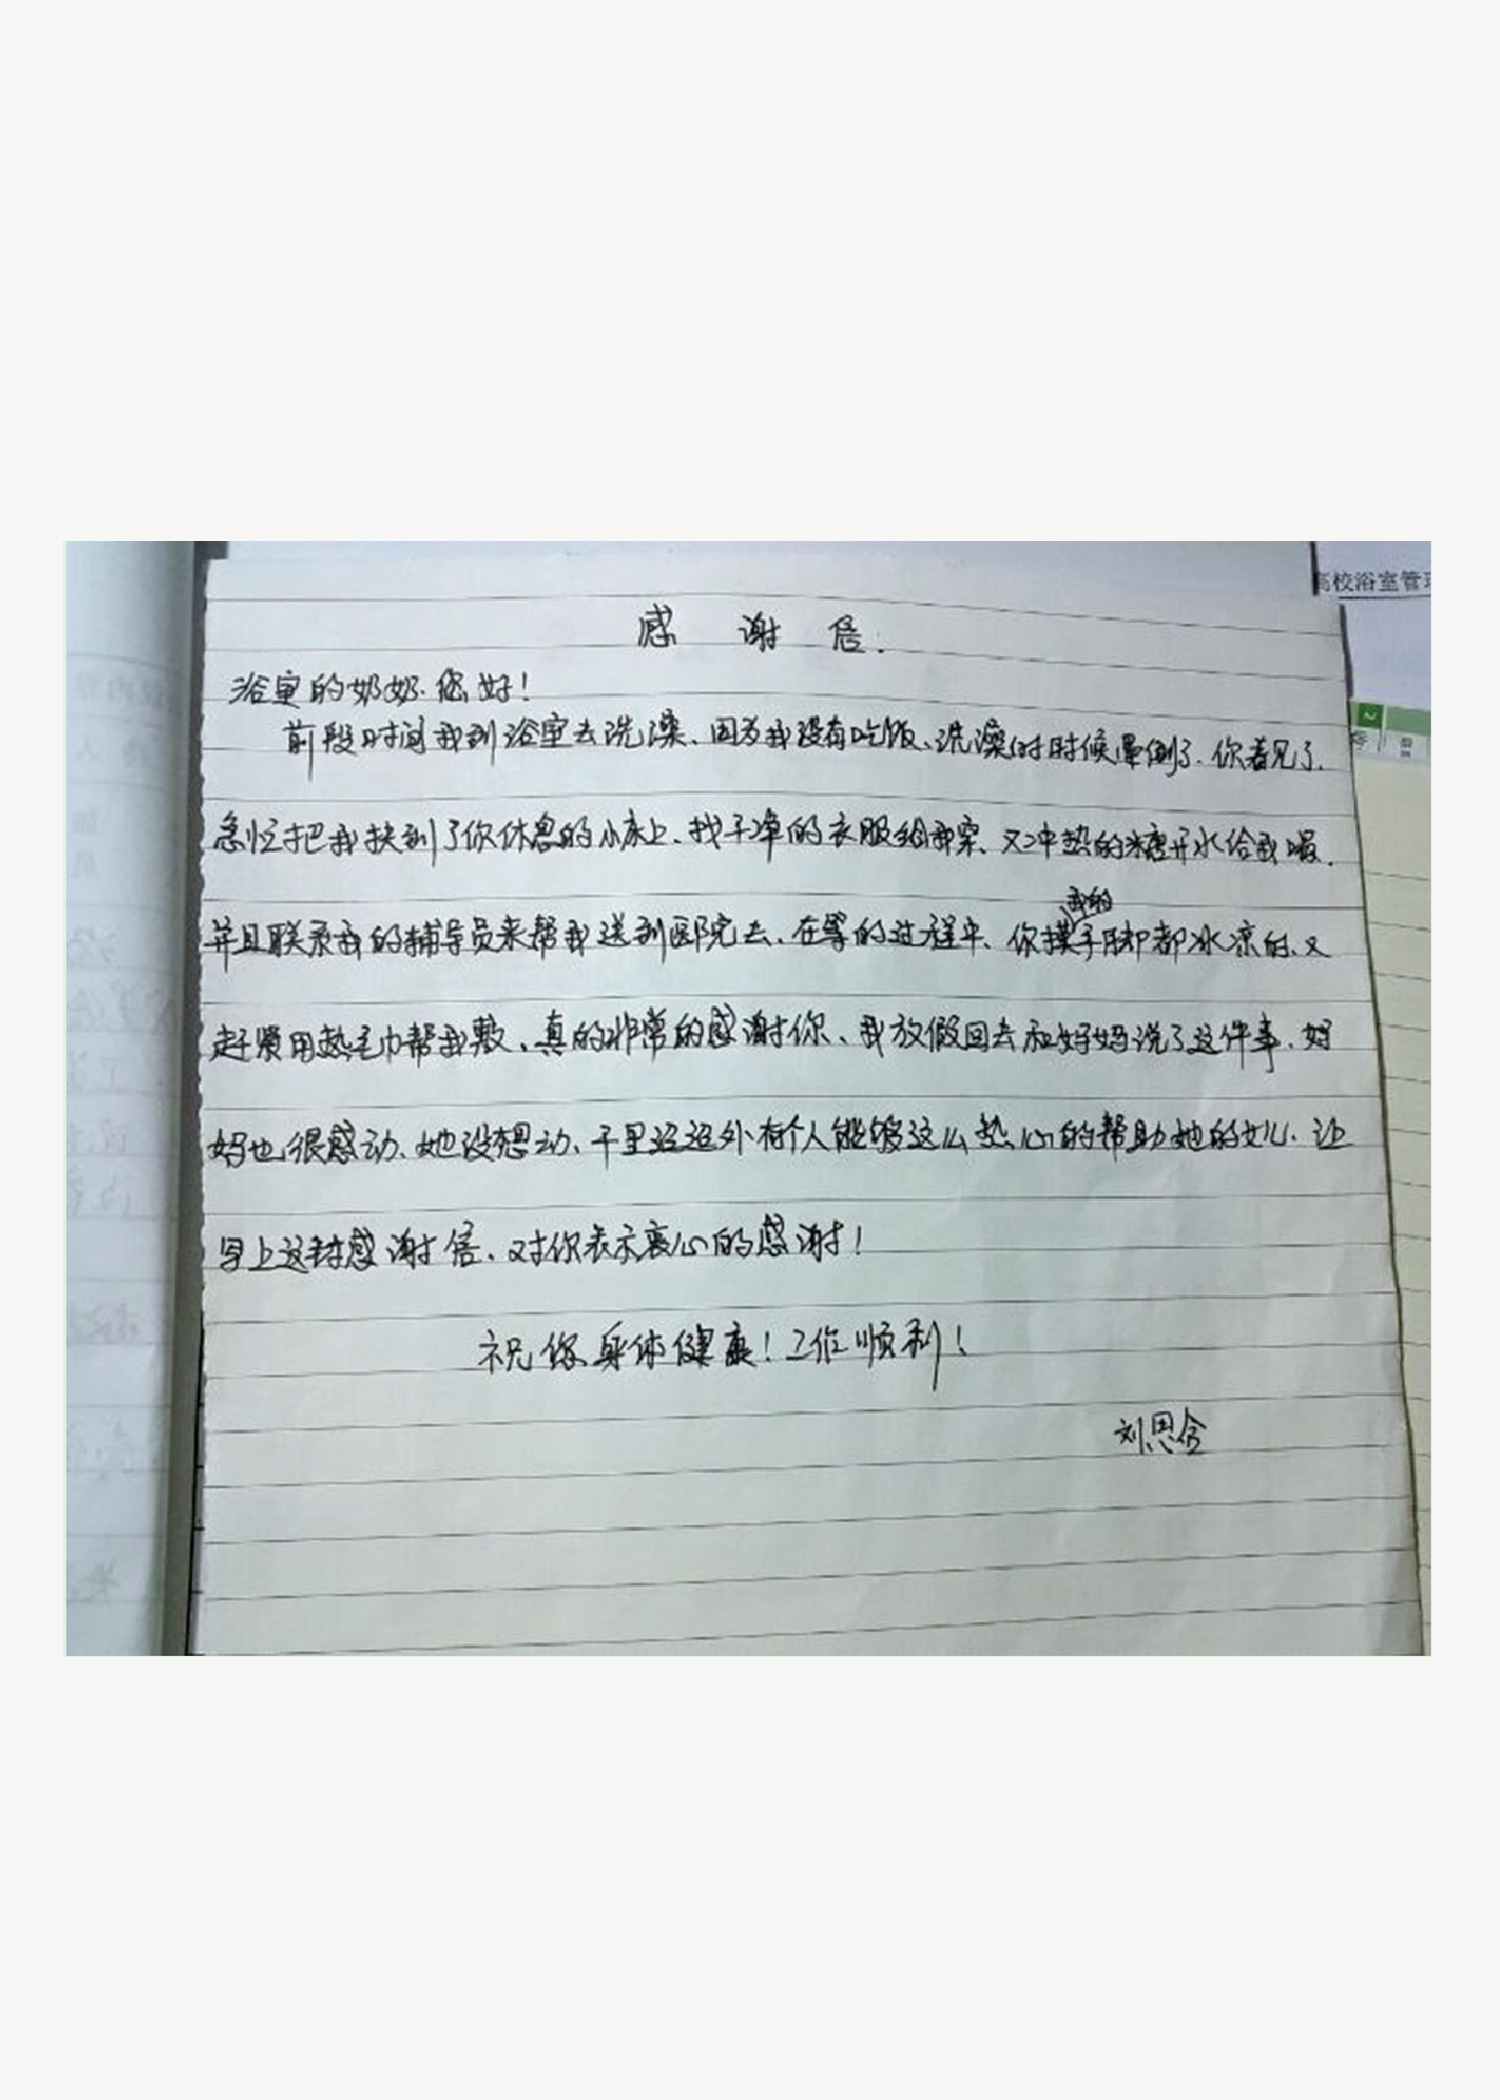 高校浴室管
感 谢 信.
浴室的奶奶.您好!
前段时间我到浴室去洗澡、因为我没有吃饭、洗澡的时候晕倒了.你看见了.
急忙把我扶到了你休息的小床上、找干净的衣服给我穿、又冲热的糖开水给我喝.
我的
并且联系我的辅导员来帮我送到医院去、在等的过程中、你摸手脚都冰凉的、又
赶紧用热毛巾帮我敷、真的非常的感谢你、我放假回去和妈妈说了这件事.妈
妈也很感动、她没想动、千里迢迢外有个人能够这么热心的帮助她的女儿.让
写上这封感谢信、对你表示衷心的感谢!
祝你身体健康!工作顺利!
刘思含
2